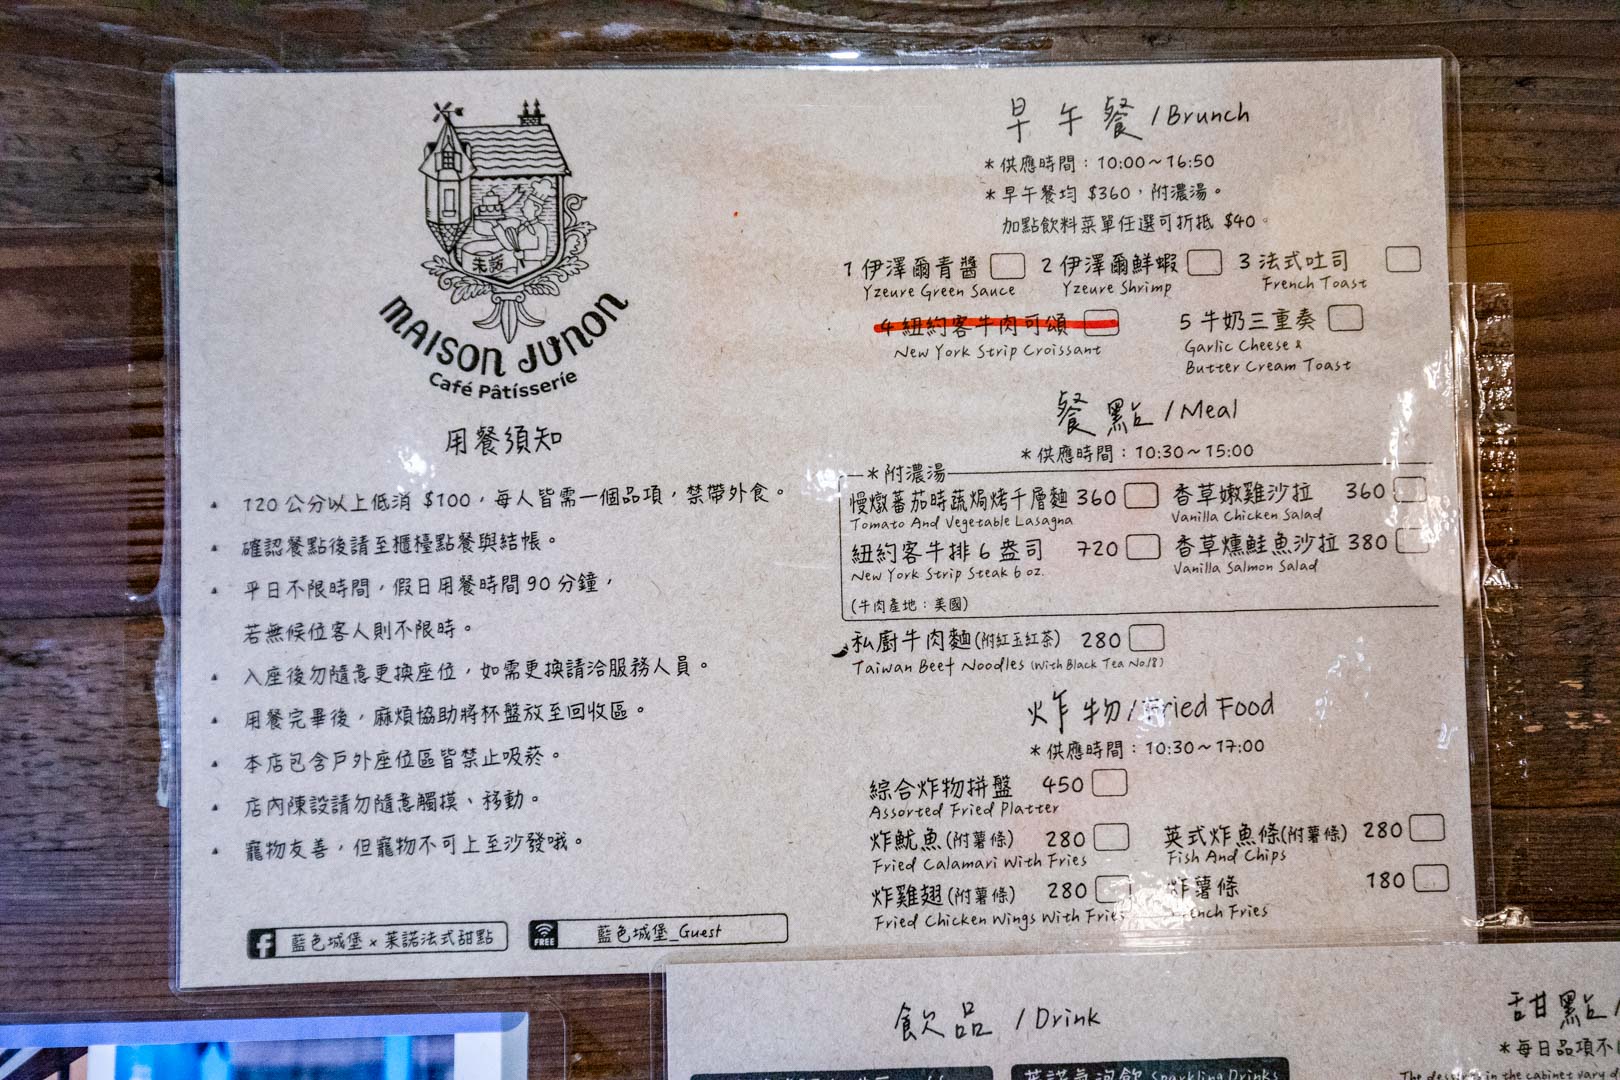 朱諾
MAISON JUNON
Café Pâtisserie
用餐須知
120 公分以上低消 $100，每人皆需一個品項，禁帶外食。
確認餐點後請至櫃檯點餐與結帳。
平日不限時間，假日用餐時間 90 分鐘，
若無候位客人則不限時。
入座後勿隨意更換座位，如需更換請洽服務人員。
用餐完畢後，麻煩協助將杯盤放至回收區。
本店包含戶外座位區皆禁止吸菸。
店內陳設請勿隨意觸摸、移動。
寵物友善，但寵物不可上至沙發哦。
藍色城堡 × 茱諾法式甜點
FREE 藍色城堡_Guest
早午餐 / Brunch
*供應時間：10:00~16:50
*早午餐均 $360，附濃湯。
加點飲料菜單任選可折抵 $40。
1 伊澤爾青醬 2 伊澤爾鮮蝦 3 法式吐司
Yzeure Green Sauce Yzeure Shrimp French Toast
4 紐約客牛肉可頌 5 牛奶三重奏
New York Strip Croissant Garlic Cheese &
Butter Cream Toast
餐點 / Meal
*供應時間：10:30~15:00
*附濃湯
慢燉蕃茄時蔬焗烤千層麵 360 香草嫩雞沙拉 360
Tomato And Vegetable Lasagna Vanilla Chicken Salad
紐約客牛排 6 盎司 720 香草燻鮭魚沙拉 380
New York Strip Steak 6 oz. Vanilla Salmon Salad
(牛肉產地：美國)
私廚牛肉麵(附紅玉紅茶) 280
Taiwan Beef Noodles (With Black Tea No.18)
炸物 / Fried Food
*供應時間：10:30~17:00
綜合炸物拼盤 450
Assorted Fried Platter
炸魷魚(附薯條) 280 英式炸魚條(附薯條) 280
Fried Calamari With Fries Fish And Chips
炸雞翅(附薯條) 280 炸薯條 180
Fried Chicken Wings With Fries French Fries
飲品 / Drink 甜點 /
*每日品項不
茱諾氣泡飲 Sparkling Drinks The desserts in the cabinet vary d